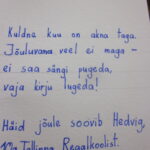 Kuldne kuu on akna taga.
Jõuluvana veel ei maga –
ei saa sängi pugeda,
vaja kirju lugeda!
Häid jõule soovib Hedvig,
10a Tallinna Reaalkoolist.